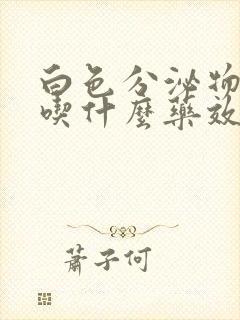 白色分泌物
喫什麼藥效
蕭子何